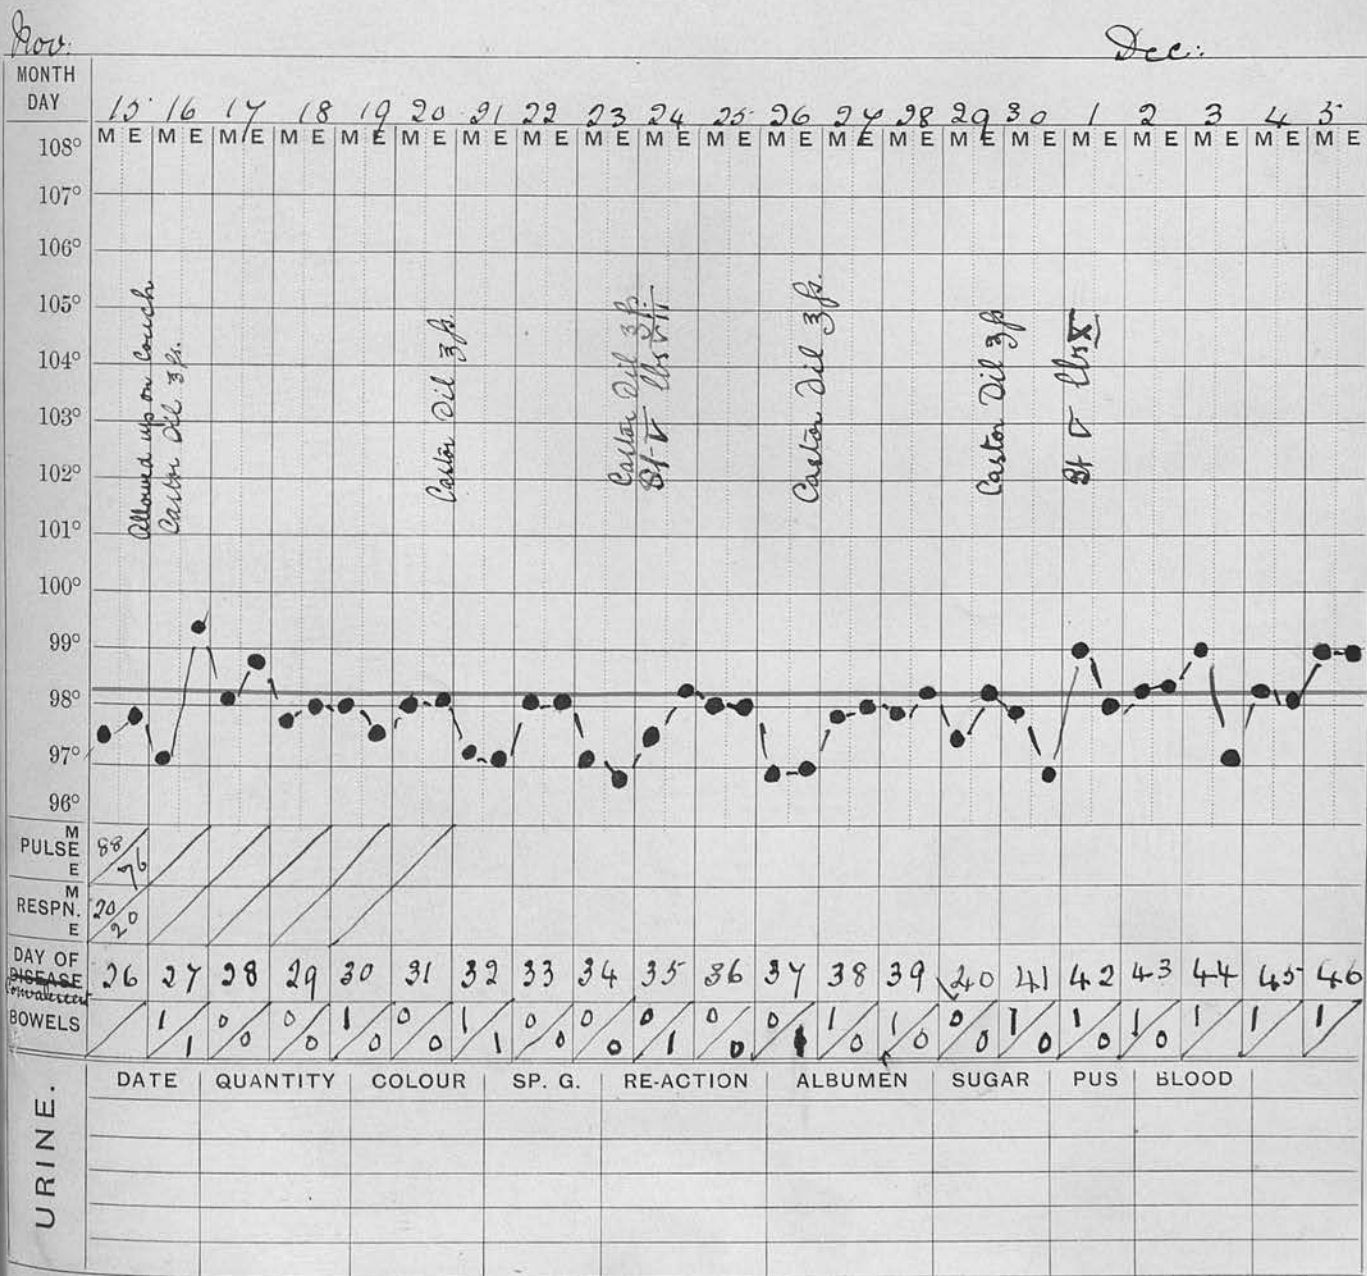 Nov: Dec:
MONTH
DAY 15 16 17 18 19 20 21 22 23 24 25 26 27 28 29 30 1 2 3 4 5
M E M E M E M E M E M E M E M E M E M E M E M E M E M E M E M E M E M E M E M E M E
108°
107°
106°
105°
104°
103°
102°
101°
100°
99°
98°
97°
96°
Allowed up on Couch
Castor Oil ℥ fs.
Castor Oil ℥ fs.
Castor Oil ℥ fs.
St V lbs VII
Castor Oil ℥ fs.
Castor Oil ℥ fs
St V lbs X
M
PULSE 88/96
E
M
RESPN. 20/20
E
DAY OF
DISEASE 26 27 28 29 30 31 32 33 34 35 36 37 38 39 40 41 42 43 44 45 46
Convalescent
BOWELS / 1/1 0/0 0/0 1/0 0/0 1/1 0/0 0/0 0/1 0/0 0/1 1/0 1/0 0/0 1/0 1/0 1/0 1/ 1/ 1/
URINE.
DATE QUANTITY COLOUR SP. G. RE-ACTION ALBUMEN SUGAR PUS BLOOD